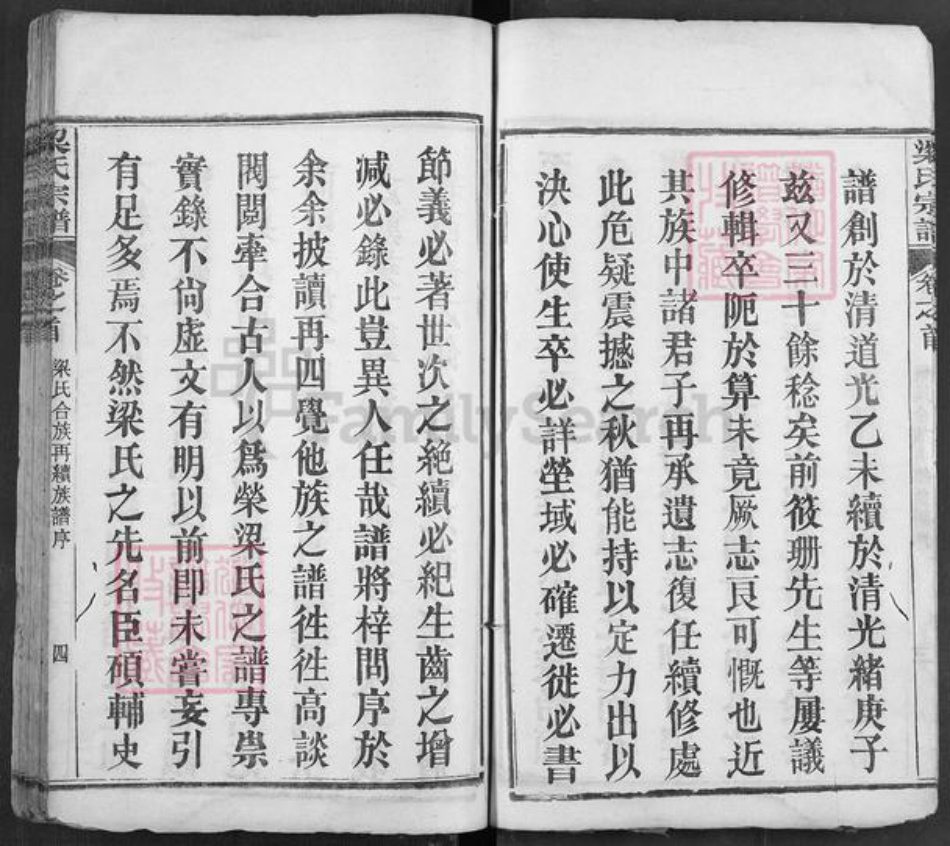 梁氏宗譜
卷之首
譜創於清道光乙未續於清光緒庚子
玆又三十餘稔矣前筱珊先生等屢議
修輯卒阨於算未竟厥志良可慨也近
其族中諸君子再承遺志復任續修處
此危疑震撼之秋猶能持以定力出以
決心使生卒必詳塋域必確遷徙必書
節義必著世次之絕續必紀生齒之增
減必錄此豈異人任哉譜將梓問序於
余余披讀再四覺他族之譜徃徃高談
閥閱牽合古人以爲榮梁氏之譜專崇
實錄不尙虛文有明以前即未嘗妄引
有足多焉不然梁氏之先名臣碩輔史
梁氏宗譜
卷之首
梁氏合族再續族譜序
四
FamilySearch